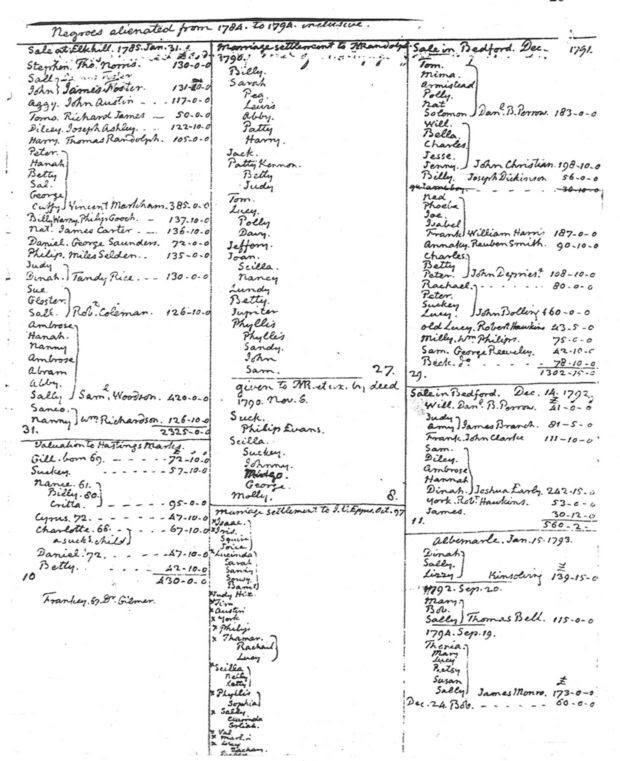 Negroes alienated from 1784. to 1794. inclusive.
Sale at Elkhill. 1785. Jan. 31.
Stephen. Thos. Norris. 130-0-0
Sally
John } James Foster 131-10-0
Aggy. John Austin - - 117-0-0
Tomo. Richard James - 50-0-0
Dilcey. Joseph Ashley. . . 122-10-0
Harry. Thomas Randolph. 105-0-0
Peter.
Hanah
Betty
Sal.
George
Cuffy } Vincent Markham. 385-0-0
Billy Warny. Philip Gooch. - 137.10-0
Nat. James Carter - - 136-10-0
Daniel. George Saunders. 72-0-0
Philip. Miles Selden. . 135-0-0
Judy
Dinah. } Tandy Rice. - - 130-0-0
Sue
Gloster.
Sall. } Robt. Coleman. 126-10-0
Ambrose
Hanah.
Nanny
Ambrose
Abram
Abby.
Sally } Saml. Woodson. 420-0-0
Sanco.
Nanny } Wm Richardson. 126-10-0
31. 2325-0-0
Valuation to Hastings Marks
Gill. born 69. - - - - 72-10-0
Suckey. - - - - - 57-10.0
Nance. 61.
Billy. 80.
Critta. } - - - 95-0-0
Cyrus. 72. - - - - 47-10-0
Charlotte. 66.
a suck'g child } - - 67-10-0
Daniel. 72. - - - 47-10-0
Betty. - - - - 42-10-0
10 430-0-0
Frankey. 67 Dr. Gilmer.
Marriage settlement to TMRandolph
1790.
Billy.
Sarah
Peg.
Lewis
Abby.
Patty
Harry.
Jack.
Patty Kennon.
Betty
Judy
Tom.
Lucy.
Polly
Davy.
Jeffery.
Joan.
Scilla.
Nancy
Lundy
Betty.
Jupiter
Phyllis
Phyllis
Sandy.
John
Sam. 27.
given to TMR. et ux. by deed
1790. Nov. 6.
Suck.
Philip Evans.
Scilla.
Suckey.
Johnny.
George
Molly. 8.
Marriage settlement to J. W. Eppes. Oct. 97
Isaac.
Iris.
Squire
Joice
Lucinda
Sarah
Sancy
Judy Hix.
Jim
Austin
York
Philip
Thamar.
Rachael
Lucy
Scilla
Phyllis
Sophia
Sally.
Val
Martin
Lucy
Zachary.
Sale in Bedford. Dec. 1791.
Tom.
Mima.
Armistead
Polly.
Nat
Solomon } Danl. B. Perrow. 183-0-0
Will.
Bella.
Charles
Jesse.
Jenny. } John Christian. 198-10.0
Billy. Joseph Dickinson 56-0-0
Ned
Phoebe
Joe.
Isabel
Frank } William Harris 187-0-0
Annaky. Reuben Smith. 90-10-0
Charles
Betty
Peter } John Depriest. 108-10-0
Rachael - - - - - 80-0-0
Peter.
Suckey
Lucy. } John Bolling £60-0-0
old Lucy. Robert Hawkins 43-5-0
Milly. Wm Philips. 75-0-0
Sam. George Reeveley. 42-10-0
Beck. do. - - - - - 78-10-0
29. 1302-15-0
Sale in Bedford. Dec. 14. 1792.
Will. Danl. B. Perrow. 41-0-0
Judy
Amy } James Branch. 81-5-0
Frank. John Clarke 111-10-0
Sam.
Dilcy.
Ambrose
Hannah
Dinah. } Joshua Early. 242-15-0
York. Robt. Hawkins. 53-0-0
James. 30-12-0
11. 560-2-
Albemarle. Jan. 15. 1793.
Dinah
Sally.
Lizzy } Kinsolving 139-15-0
1792. Sep. 20.
Mary
Bob.
Sally } Thomas Bell. 115-0-0
1794. Sep. 19.
Thenia
Mary
Lucy
Betsy
Susan
Sally } James Monroe. 173-0-0
Dec. 24. Bob. - - - - - 60-0-0